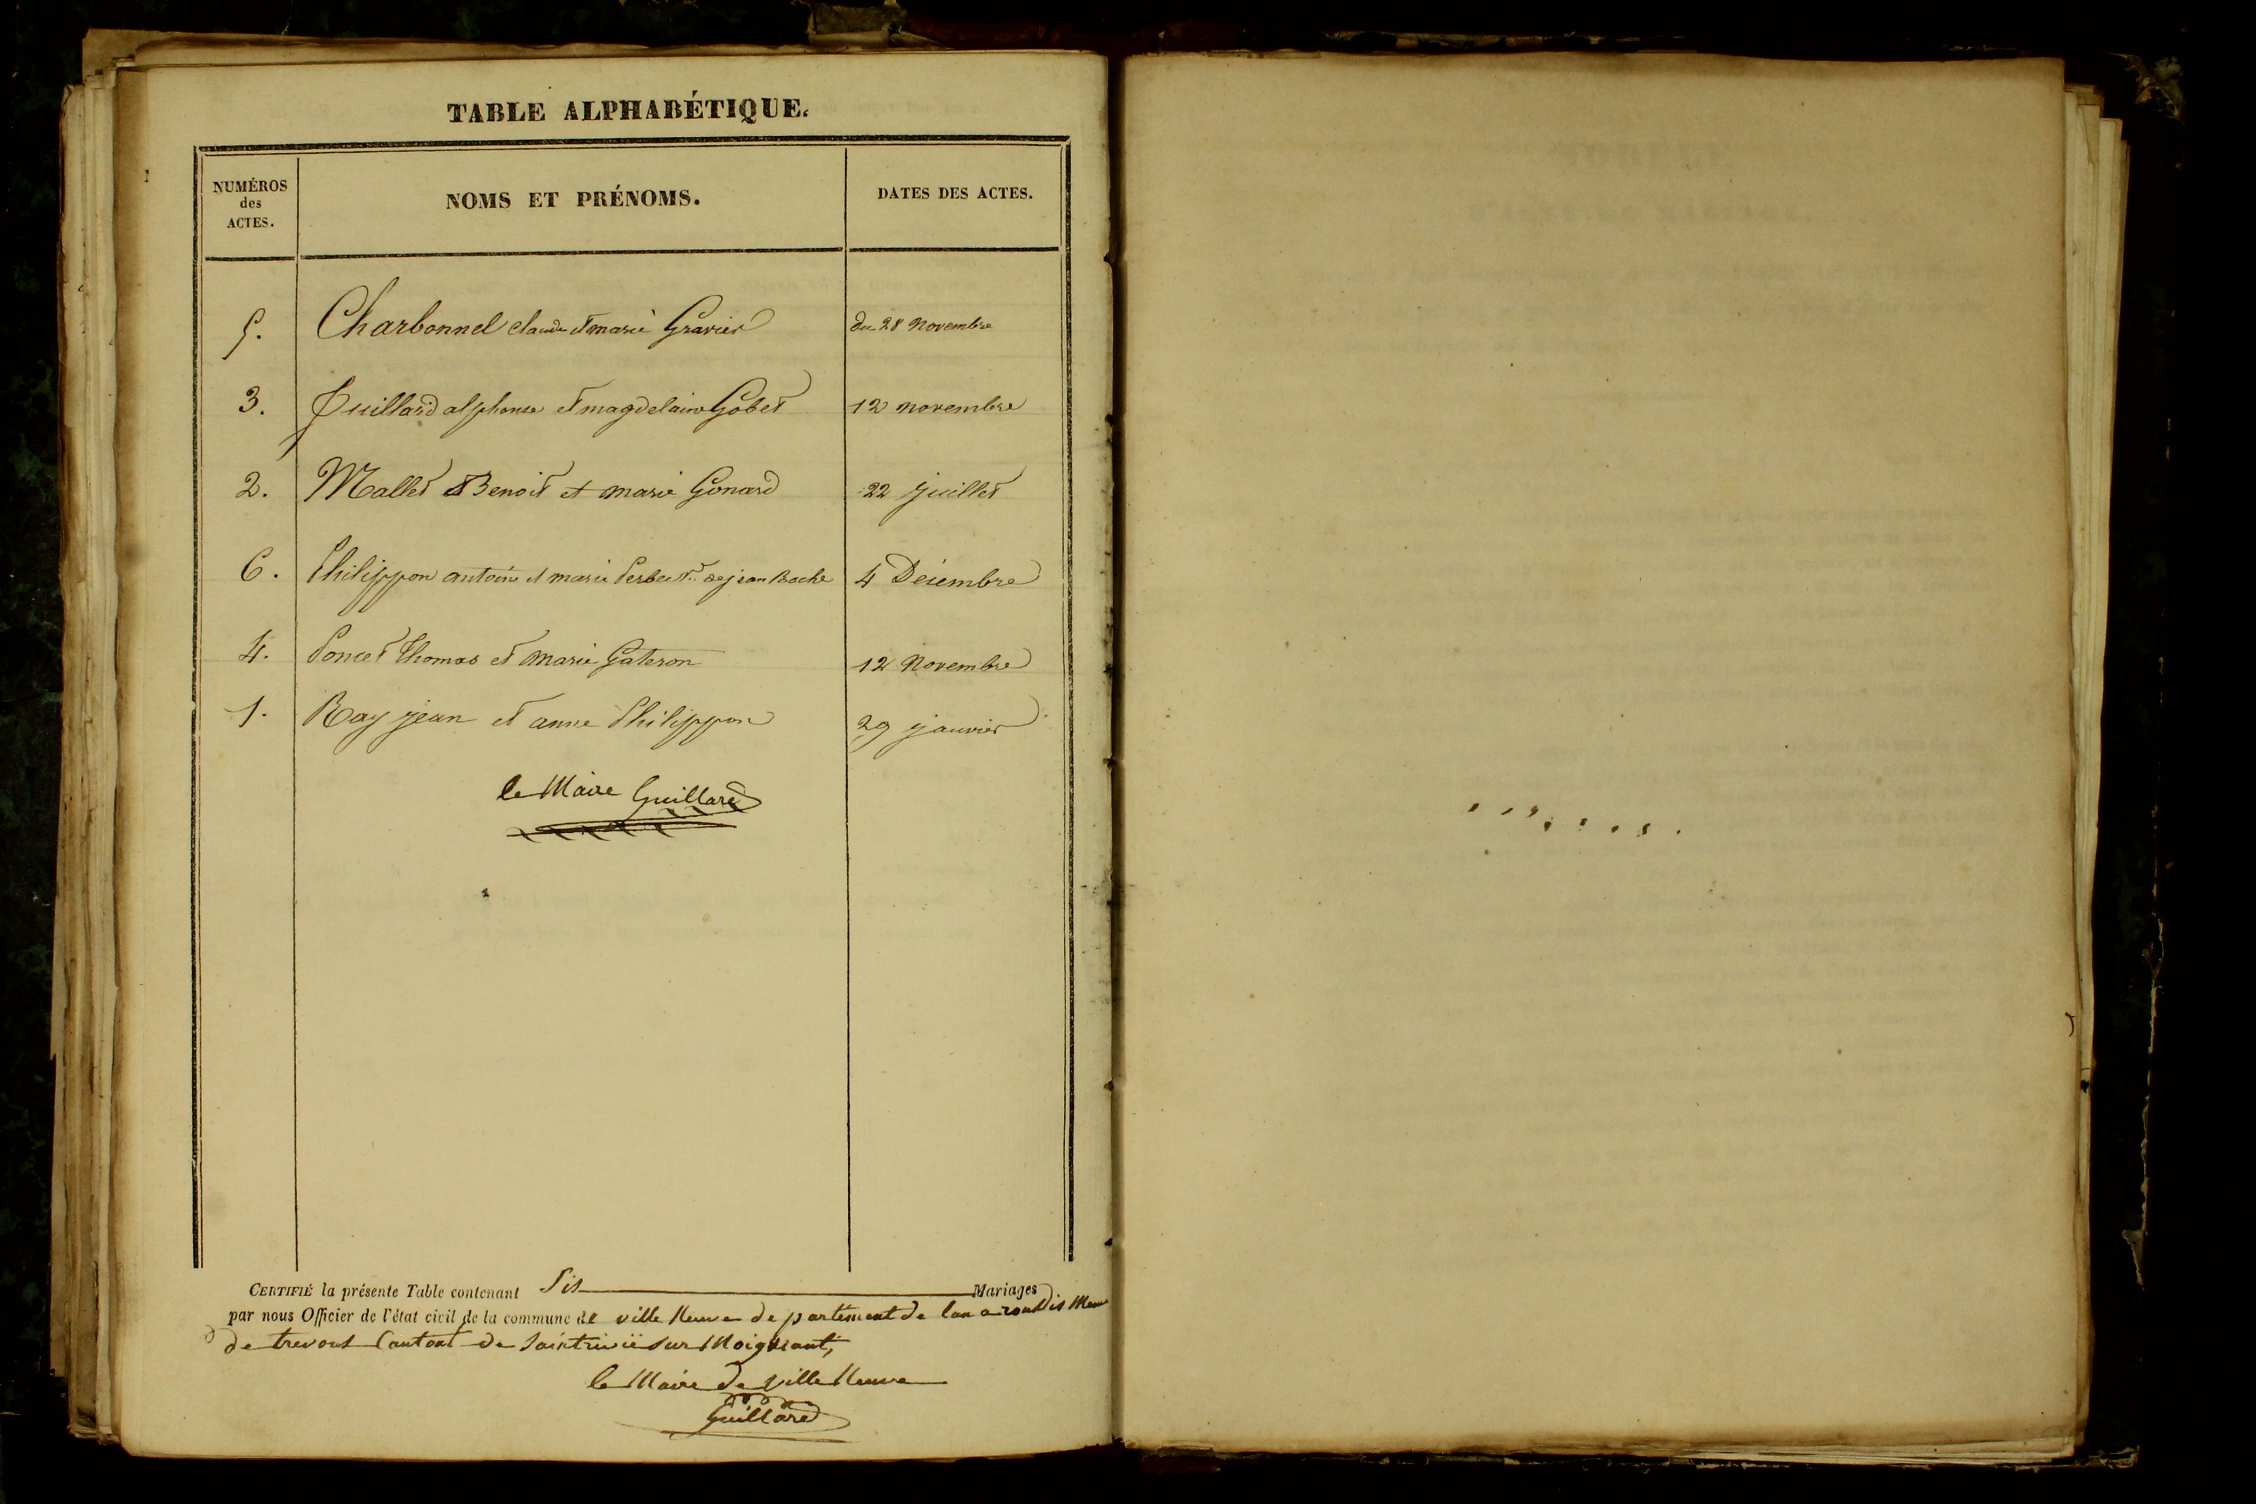 TABLE ALPHABÉTIQUE.
NUMÉROS
des
ACTES.
NOMS ET PRÉNOMS.
DATES DES ACTES.
5. Charbonnel claude et marie Gravier du 28 Novembre
3. Juillard alphonse et magdelaine Gobet 12 novembre
2. Mallet Benoit et marie Gonard 22 juillet
6. Philippon antoine et marie de jean Boche 4 Decembre
4. Poncet Thomas et Marie Gateron 12 Novembre
1. Ray jean et anne Philippon 29 janvier
le Maire Guillard
CERTIFIÉ la présente Table contenant Sis Mariages
par nous Officier de l'état civil de la commune de ville Neuve de partement de lan a rondis Men
de trevout Cantont de Saintrivié sur Moignant,
le Maire de ville Neuve
Guillard